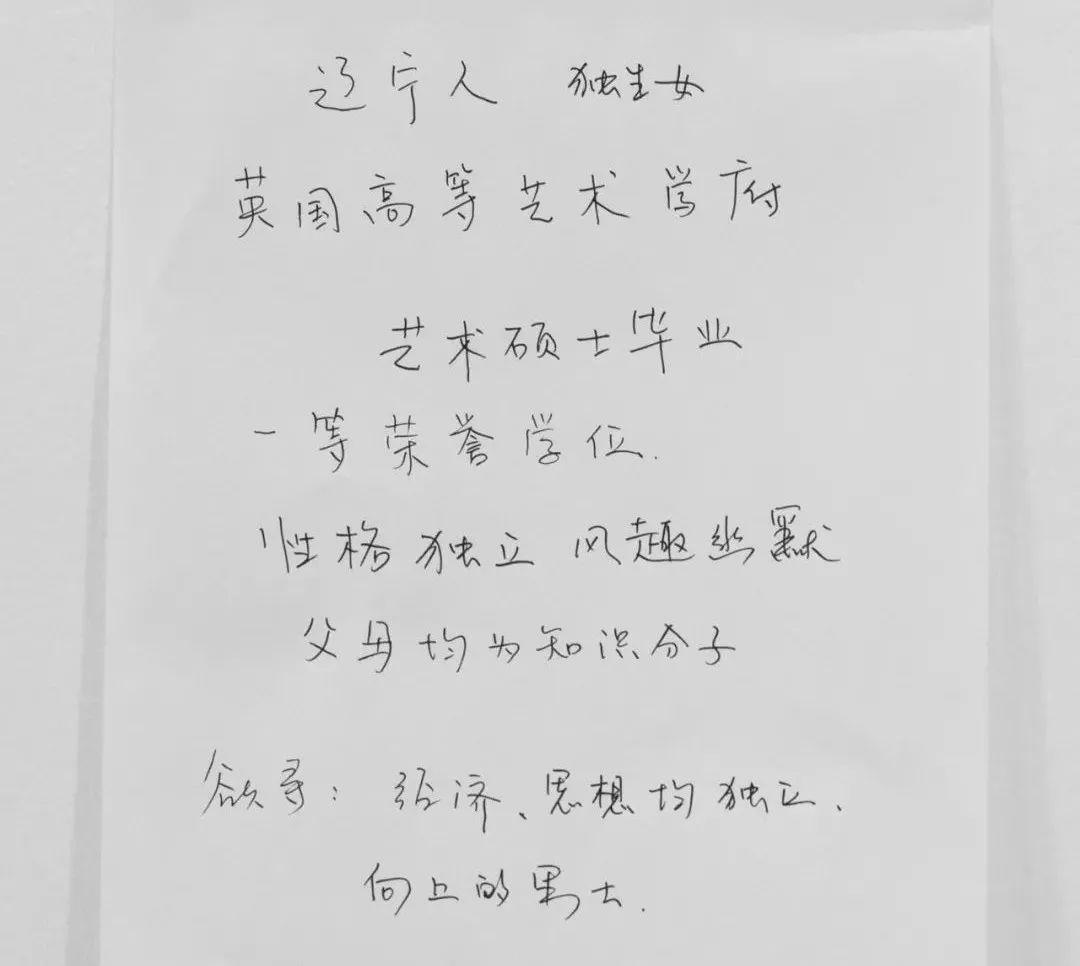 辽宁人 独生女
英国高等艺术学府
艺术硕士毕业
一等荣誉学位.
性格独立 风趣幽默
父母均为知识分子
欲寻：经济、思想均独立、
向上的男士.